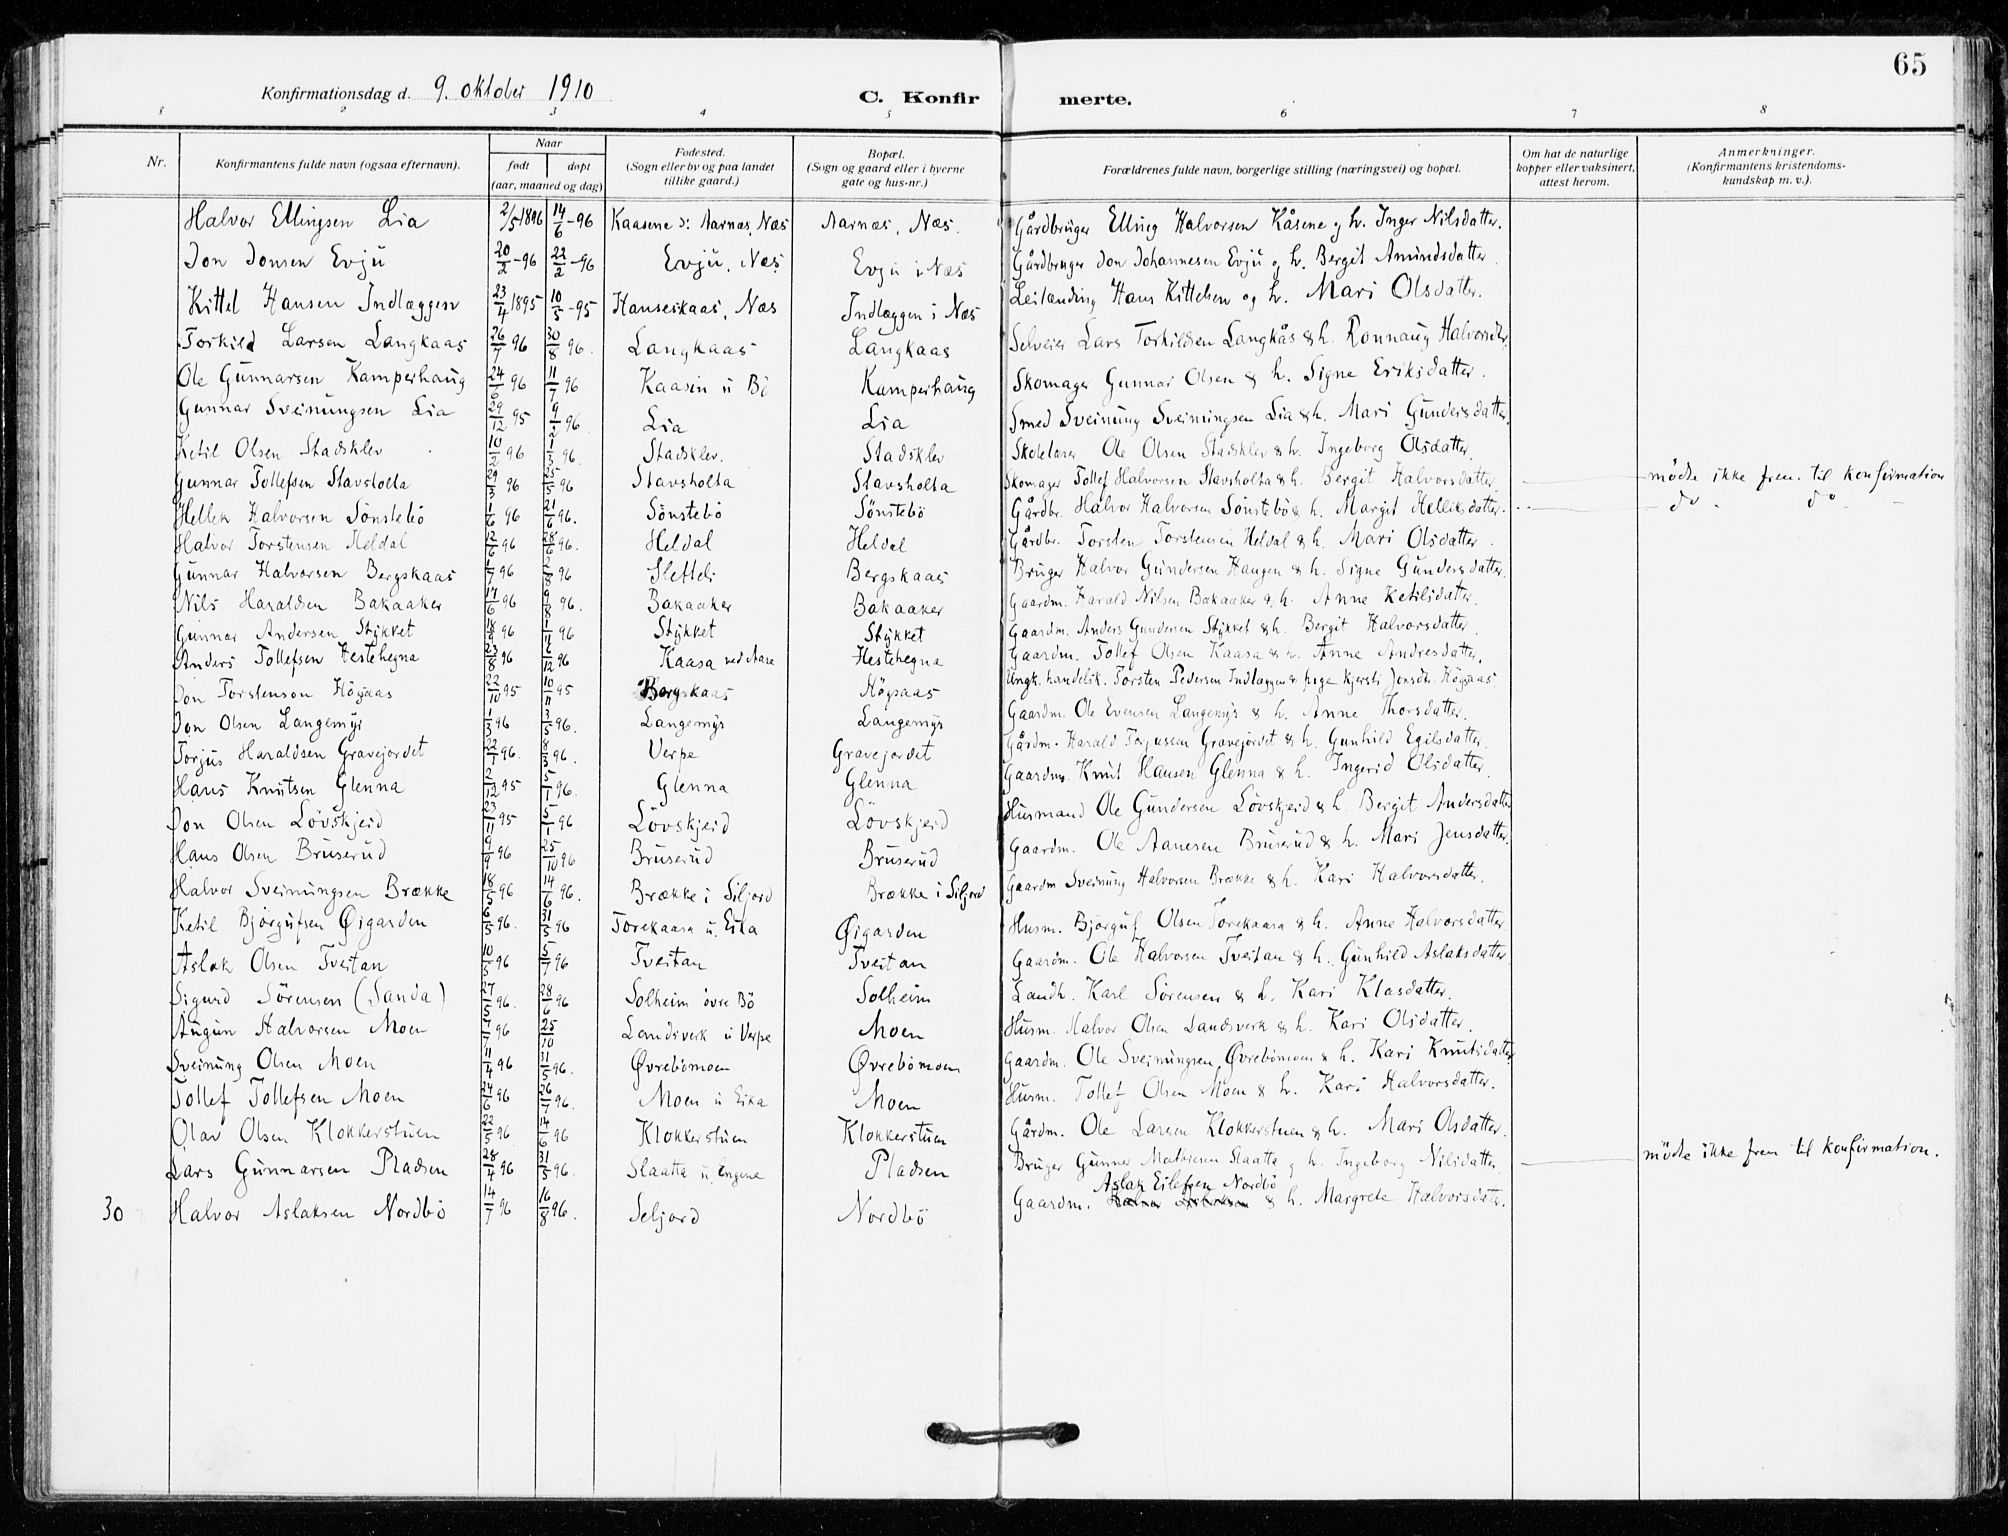 65
Konfirmationsdag d. 9. oktober 1910 C. Konfirmerte.
1 2 3 4 5 6 7 8
Nr. Konfirmantens fulde navn (ogsaa efternavn). Naar født døpt (aar, maaned og dag) Fødested. (Sogn eller by og paa landet tillike gaard.) Bopæl. (Sogn og gaard eller i byerne gate og hus-nr.) Forældrenes fulde navn, borgerlige stilling (næringsvei) og bopæl. Om hat de naturlige kopper eller vaksinert, attest herom. Anmerkninger. (Konfirmantens kristendoms-kundskap m. v.).
Halvor Ellingsen Lia 2/5 1896 14/6 -96 Kaasene ɔ: Aarnæs, Næs Aarnæs, Næs. Gårdbruger Elling Halvorsen Kåsene og h. Inger Nilsdatter.
Jon Jonsen Evju 20/2 -96 22/2 -96 Evju, Næs Evju i Næs Gårdbruger Jon Johannesen Evju og h. Bergit Amundsdatter.
Kittel Hansen Indlæggen 23/4 1895 10/5 -95 Hanseskaas, Næs Indlæggen i Næs Leilænding Hans Kittelsen og h. Mari Olsdatter.
Torkild Larsen Langkaas 26/7 96 30/8 96. Langkaas Langkaas Selveier Lars Torkildsen Langkås & h. Ronnaug Halvorsdtr.
Ole Gunnarsen Kamperhaug 24/6 96 11/7 96. Kaasin u Bö Kamperhaug Skomager Gunnar Olsen & h. Signe Eriksdatter.
Gunnar Sveinungsen Lia 29/12 95 9/2 96. Lia Lia Smed Sveinung Sveinungsen Lia & h. Mari Gundersdatter.
Ketil Olsen Stadsklev 10/2 96 1/3 96. Stadsklev. Stadsklev Skolelærer Ole Olsen Stadsklev & h. Ingeborg Olsdatter.
Gunnar Tollefsen Stavsholta 29/3 96 25/5 96 Stavsholta Stavsholta Skomager Tollef Halvorsen Stavsholta & h. Bergit Halvorsdatter. mødte ikke frem til konfirmation
Hellek Halvorsen Sönstebö 1/6 96 21/6 96. Sönstebö Sönstebö Gårdbr. Halvor Halvorsen Sönstebö & h. Margit Helliksdatter. do. do. -
Halvor Torstensen Heldal 12/6 96 28/6 96. Heldal Heldal Gårdbr. Torsten Torstensen Heldal & h. Mari Olsdatter.
Gunnar Halvorsen Bergskaas 1/7 96 2/8 96 Slettdi Bergskaas Bruger Halvor Gundersen Haugen & h. Signe Gundersdatter.
Nils Haraldsen Bakaaker 17/6 96 9/8 96. Bakaaker Bakaaker Gaardm. Harald Nilsen Bakaaker & h. Anne Ketilsdatter.
Gunnar Andersen Stykket 18/9 96 1/11 96 Stykket Stykket Gaardm. Anders Gundersen Stykket & h. Bergit Halvorsdatter.
Anders Tollefsen Hestehegna 23/8 96 6/12 96 Kaasa ved Aase Hestehegna Gaardm. Tollef Olsen Kaasa & h. Anne Andresdatter.
Jon Torstenson Högaas 22/10 95 10/11 95 Bergskaas Högaas Ungk. handelsk. Torsten Pedersen Indlæggen & pige Kjersti Jonsdtr. Högaas
Jon Olsen Langemyr 1/3 96 3/5 96. Langemyr Langemyr Gaardm. Ole Evensen Langemyr & h. Anne Thorsdatter.
Torjus Haraldsen Gravejordet 22/1 96. 8/3 96. Verpe Gravejordet Gårdm. Harald Torjussen Gravejordet & h. Gunhild Egilsdatter.
Hans Knutsen Glenna 2/12 95 5/1 96. Glenna Glenna Gaardm. Knut Hansen Glenna & h. Ingerid Olsdatter.
Jon Olsen Lövskjeid 23/11 95 5/1 96 Lövskjeid Lövskjeid Husmand Ole Gundersen Lövskjeid & h. Bergit Andersdatter
Hans Olsen Bruserud 9/9 96 25/10 96 Bruserud Bruserud Gaardm. Ole Aanesen Bruserud & h. Mari Jensdatter.
Halvor Sveinungsen Brække 18/5 96 14/6 96. Brække i Siljord Brække i Siljord Gaardm Sveinung Halvorsen Brække & h. Kari Halvorsdatter.
Ketil Bjørgufsen Øigarden 6/5 96. 31/5 96 Torekaasa u. Eika Øigarden Husm. Bjørguf Olsen Torekaasa & h. Anne Halvorsdatter.
Aslak Olsen Tveitan 10/5 96 5/7 96 Tveitan Tveitan Gaardm. Ole Halvorsen Tveitan & h. Gunhild Aslaksdatter
Sigurd Sörensen (Sanda) 27/5 96. 28/6 96 Solheim övre Bö Solheim Landh. Karl Sörensen & h. Kari Klasdatter.
Augun Halvorsen Moen 5/7 96 25/10 Landsverk u Verpe Moen Husm. Halvor Olsen Landsverk & h. Kari Olsdatter.
Sveinung Olsen Moen 11/4 96 31/5 96. Øvrebömoen Øvrebömoen Gaardm. Ole Sveinungsen Øvrebömoen & h. Kari Knutsdatter
Tollef Tollefsen Moen 24/6 96 26/7 96. Moen u Eika Moen Husm. Tollef Olsen Moen & h. Kari Halvorsdatter.
Olav Olsen Klokkerstuen 22/5 96 14/6 96 Klokkerstuen Klokkerstuen Gårdm. Ole Larsen Klokkerstuen & h. Mari Olsdatter.
Lars Gunnarsen Pladsen 28/4 96 31/5 96. Slaatta u. Engene Pladsen Bruger Gunnar Mathisen Slaatta og h. Ingeborg Nilsdatter. mödte ikke frem til konfirmation.
Aslak Eilefsen Nordbö
30 Halvor Aslaksen Nordbö 14/7 96 16/8 96. Seljord Nordbö Gaardm. & h. Margrete Halvorsdatter.